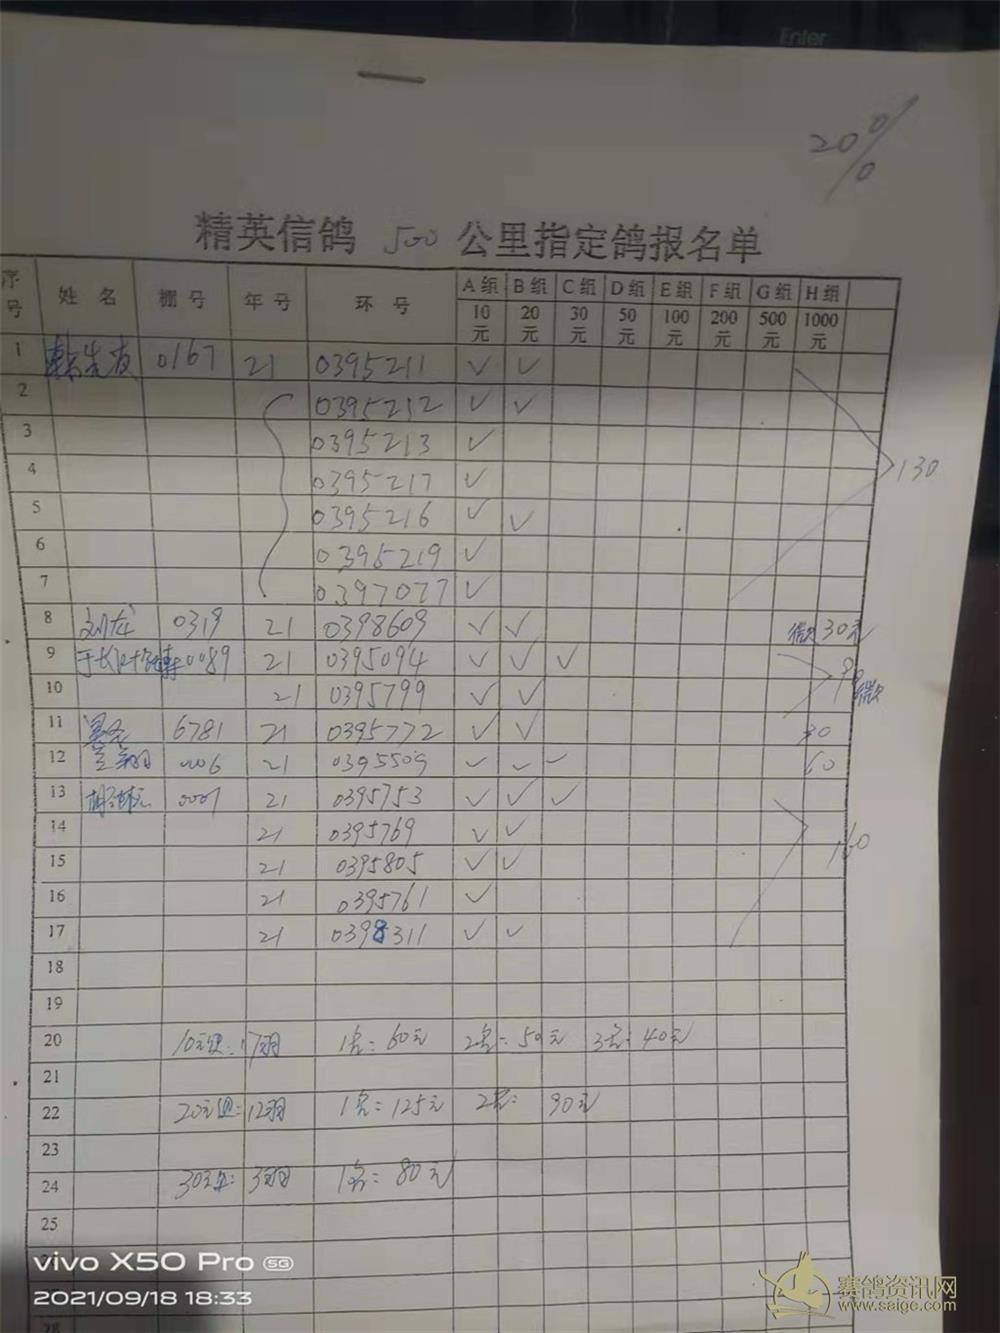 Enter
20%
精英信鸽 500 公里指定鸽报名单
序号 姓名 棚号 年号 环号 A组 B组 C组 D组 E组 F组 G组 H组
10元 20元 30元 50元 100元 200元 500元 1000元
1 0167 21 0395211 ✓ ✓
2 0395212 ✓ ✓
3 0395213 ✓
4 0395217 ✓ 130
5 0395216 ✓ ✓
6 0395219 ✓
7 0397077 ✓
8 刘龙 0319 21 0398609 ✓ ✓ 30元
9 0089 21 0395094 ✓ ✓ ✓
10 21 0395799 ✓ ✓
11 6781 21 0395772 ✓ ✓ 30
12 21 0395509 ✓ ✓ ✓ 60
13 21 0395753 ✓ ✓ ✓
14 21 0395769 ✓ ✓ 160
15 21 0395805 ✓ ✓
16 21 0395761 ✓
17 21 0398311 ✓ ✓
18
19
20 10元组: 17羽 1名: 60元 2名: 50元 3名: 40元
21
22 20元组: 12羽 1名: 125元 2名: 90元
23
24 30元组: 3羽 1名: 80元
25
vivo X50 Pro 5G
2021/09/18 18:33
28
赛鸽资讯网
www.saige.com